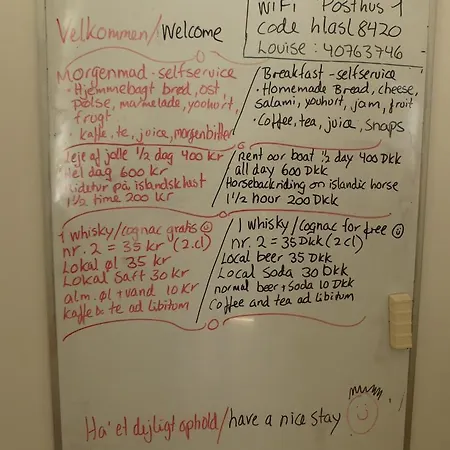 WiFi Posthus 1
code hlasl8420
Louise: 40763746
Velkommen/Welcome
Morgenmad - selfservice
· Hjemmebagt brød, ost
pølse, marmelade, yoohurt,
frugt
· kaffe, te, juice, morgenbitter
Breakfast - selfservice
· Homemade Bread, cheese,
salami, youhurt, jam, fruit
· Coffee, tea, juice, snaps
Leje af jolle 1/2 dag 400 kr
Hel dag 600 kr
Ridetur på islandsk hest
1 1/2 time 200 kr
Rent oor boat 1/2 day 400 Dkk
all day 600 Dkk
Horsebackriding on islandic horse
1 1/2 hour 200 Dkk
1 whisky/cognac gratis
nr. 2 = 35 kr (2.cl)
Lokal øl 35 kr
Lokal saft 30 kr
alm. øl + vand 10 kr
kaffe & te ad libitum
1 whisky/cognac for free
nr. 2 = 35 Dkk (2cl)
Local beer 35 Dkk
Local soda 30 Dkk
normal beer + soda 10 Dkk
Coffee and tea ad libitum
Ha' et dejligt ophold/have a nice stay